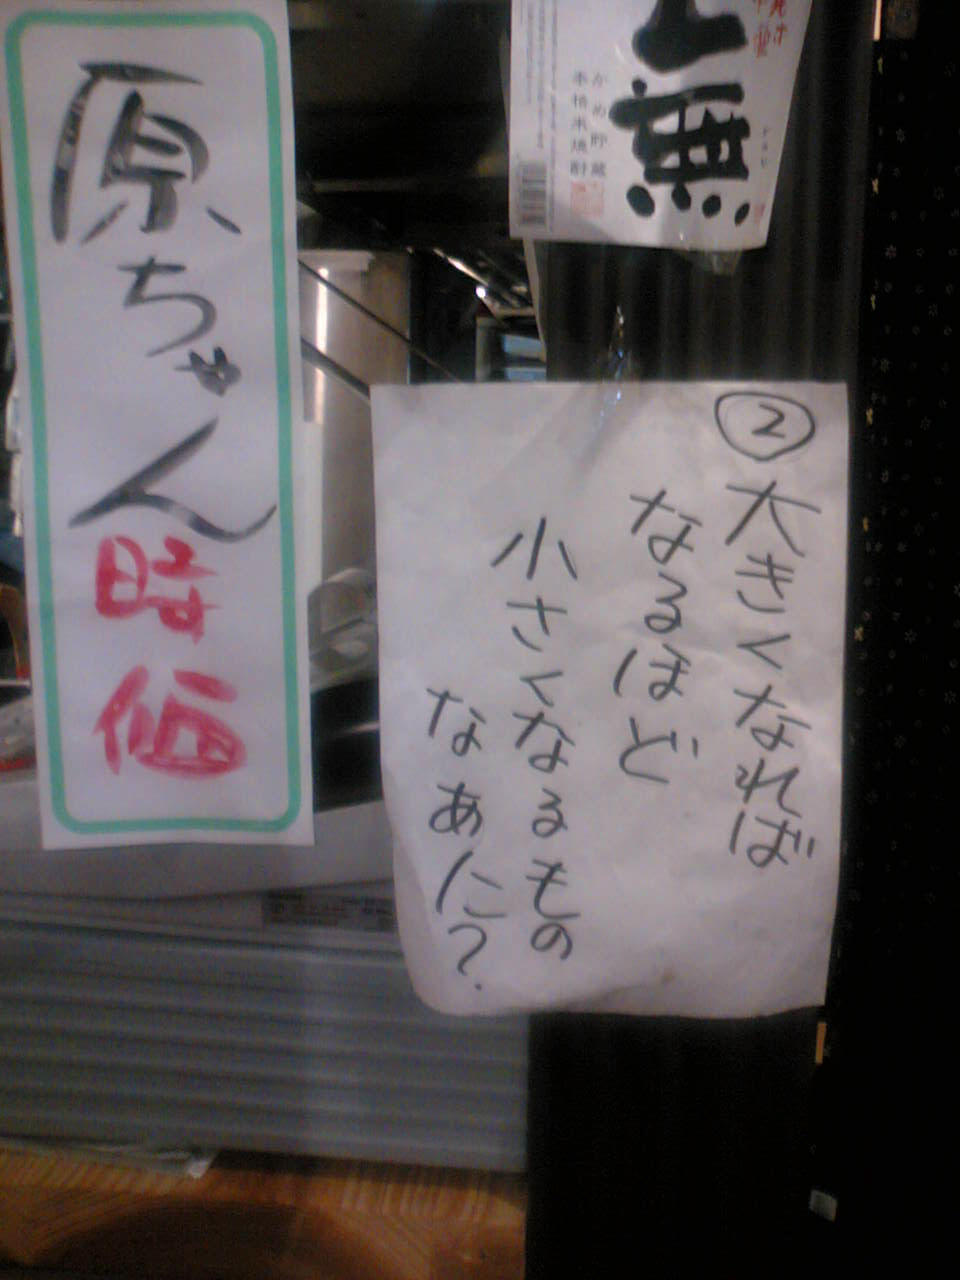 原ちゃん時価
無
かめ貯蔵
本格米焼酎
②大きくなれば
なるほど
小さくなるもの
なあに?